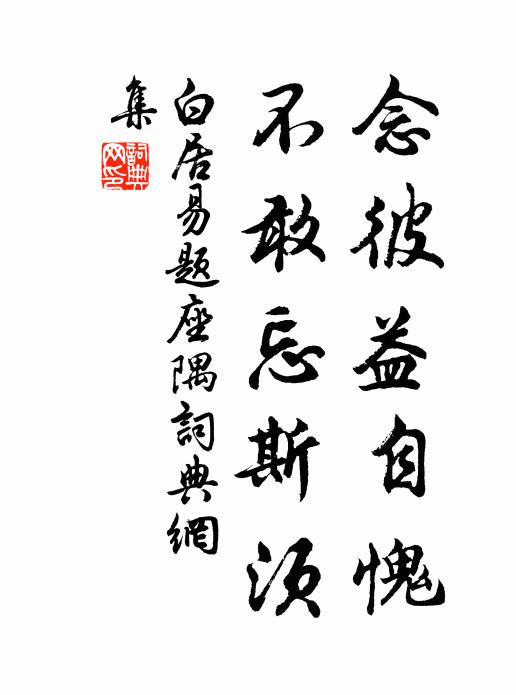 念彼益自愧
不敢忘斯須
白居易題座隅詞典網
集
詞典
网印